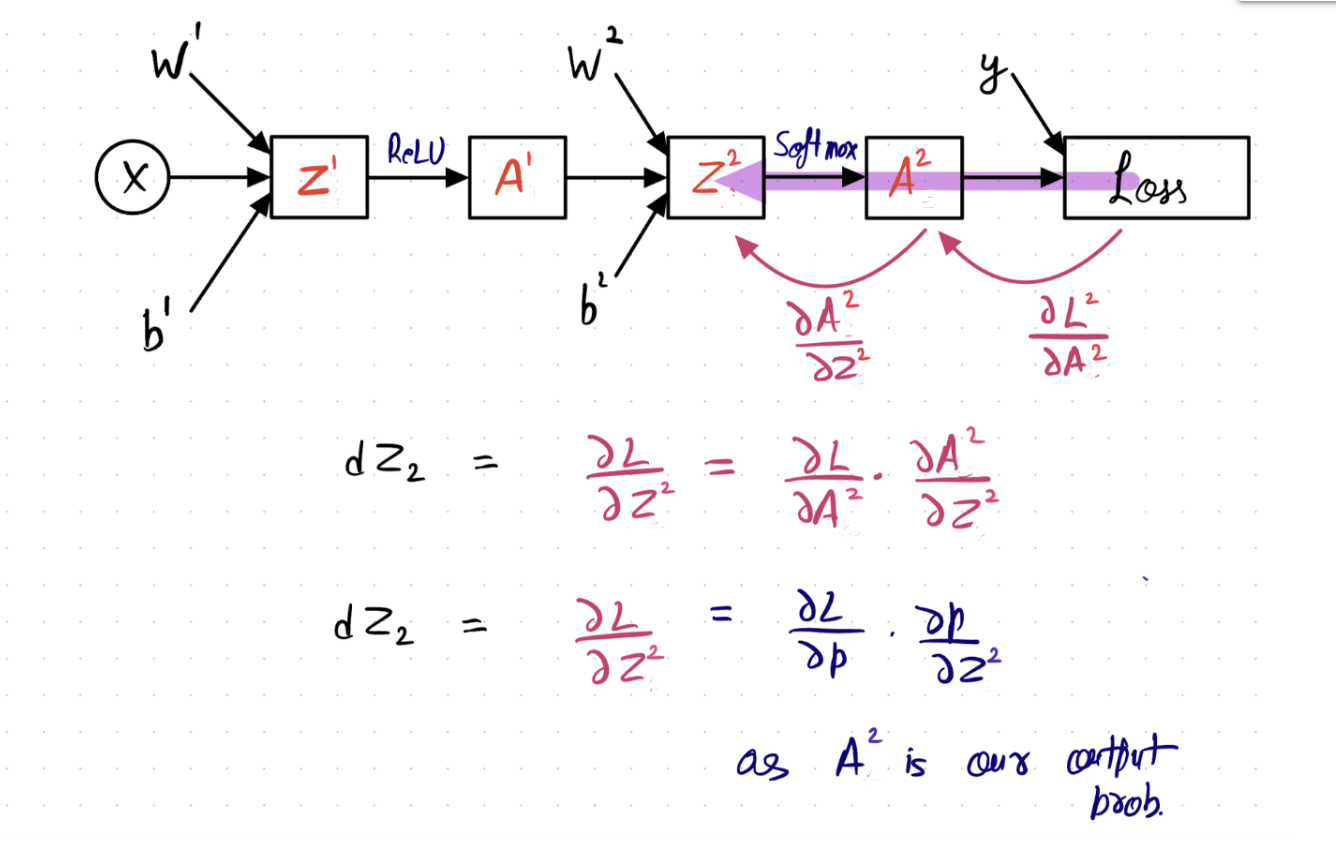 W¹ W² y
X Z¹ ReLU A¹ Z² Softmax A² Loss
b¹ b²
∂A²/∂Z² ∂L²/∂A²
dZ₂ = ∂L/∂Z² = ∂L/∂A² . ∂A²/∂Z²
dZ₂ = ∂L/∂Z² = ∂L/∂p . ∂p/∂Z²
as A² is our output
prob.